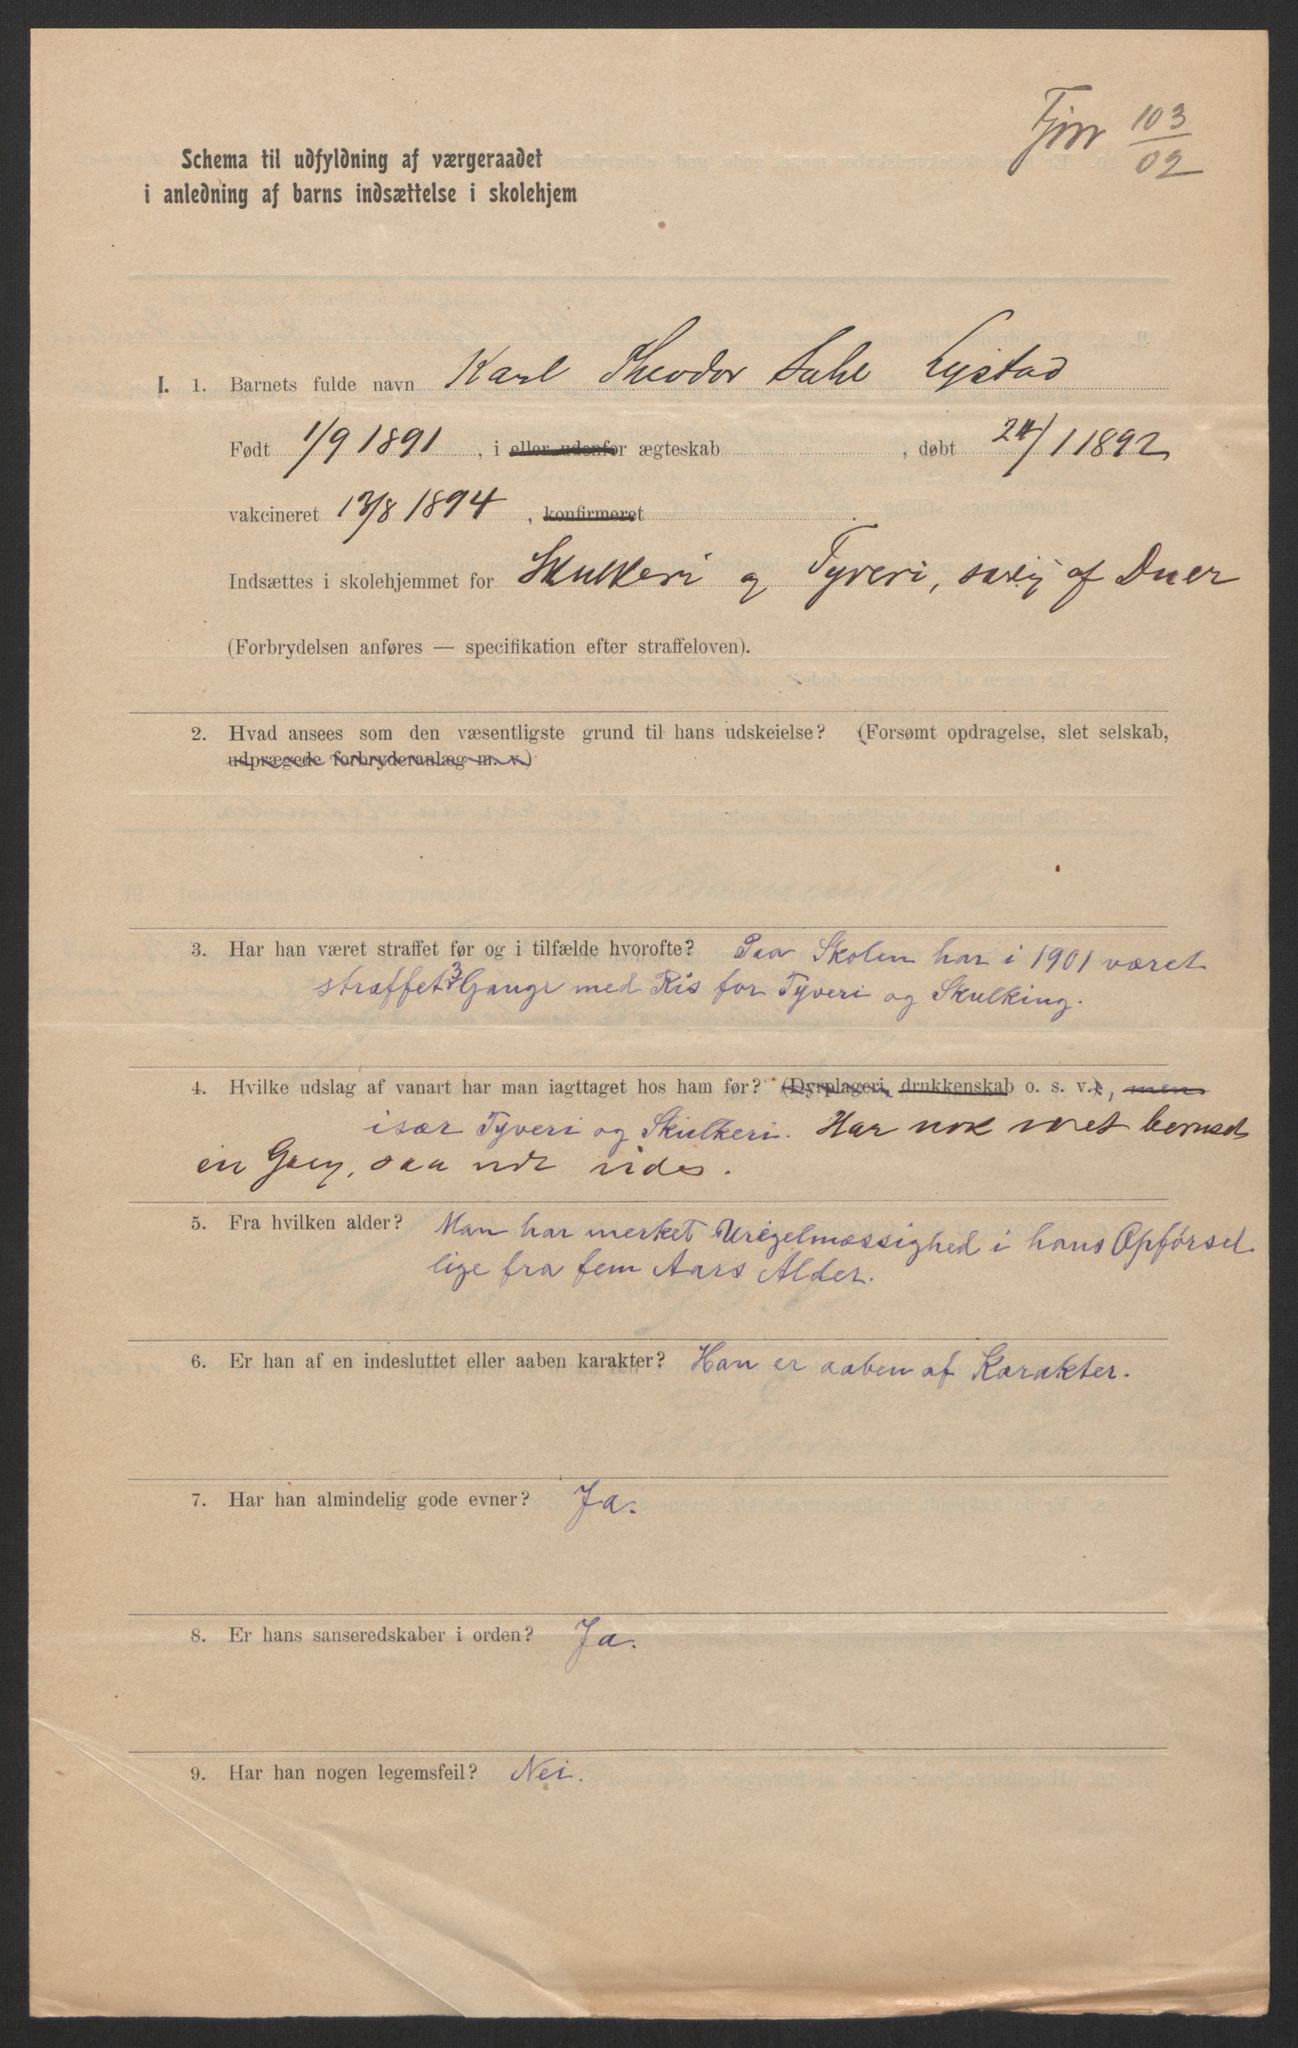 Fjrr 103/02
Schema til udfyldning af værgeraadet
i anledning af barns indsættelse i skolehjem
I. 1. Barnets fulde navn Karl Theodor Dahl Lystad
Født 1/9 1891, i eller udenfor ægteskab, døbt 24/1 1892
vakcineret 13/8 1894, konfirmeret
Indsættes i skolehjemmet for Skulkeri og Tyveri, særlig af Duer
(Forbrydelsen anføres — specifikation efter straffeloven).
2. Hvad ansees som den væsentligste grund til hans udskeielse? (Forsømt opdragelse, slet selskab,
udprægede forbryderanlæg m. v.)
3. Har han været straffet før og i tilfælde hvorofte? Paa Skolen har i 1901 været
straffet 3 Gange med Ris for Tyveri og Skulking.
4. Hvilke udslag af vanart har man iagttaget hos ham før? (Dyrplageri, drukkenskab o. s. v.), men
især Tyveri og Skulkeri. Har nok været beruset
en Gang, saa vidt vides.
5. Fra hvilken alder? Man har merket Uregelmæssighed i hans Opførsel
lige fra fem Aars Alder.
6. Er han af en indesluttet eller aaben karakter? Han er aaben af Karakter.
7. Har han almindelig gode evner? Ja.
8. Er hans sanseredskaber i orden? Ja.
9. Har han nogen legemsfeil? Nei.